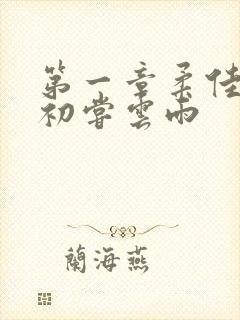 第一章柔佳
初嘗雲雨
蘭海燕